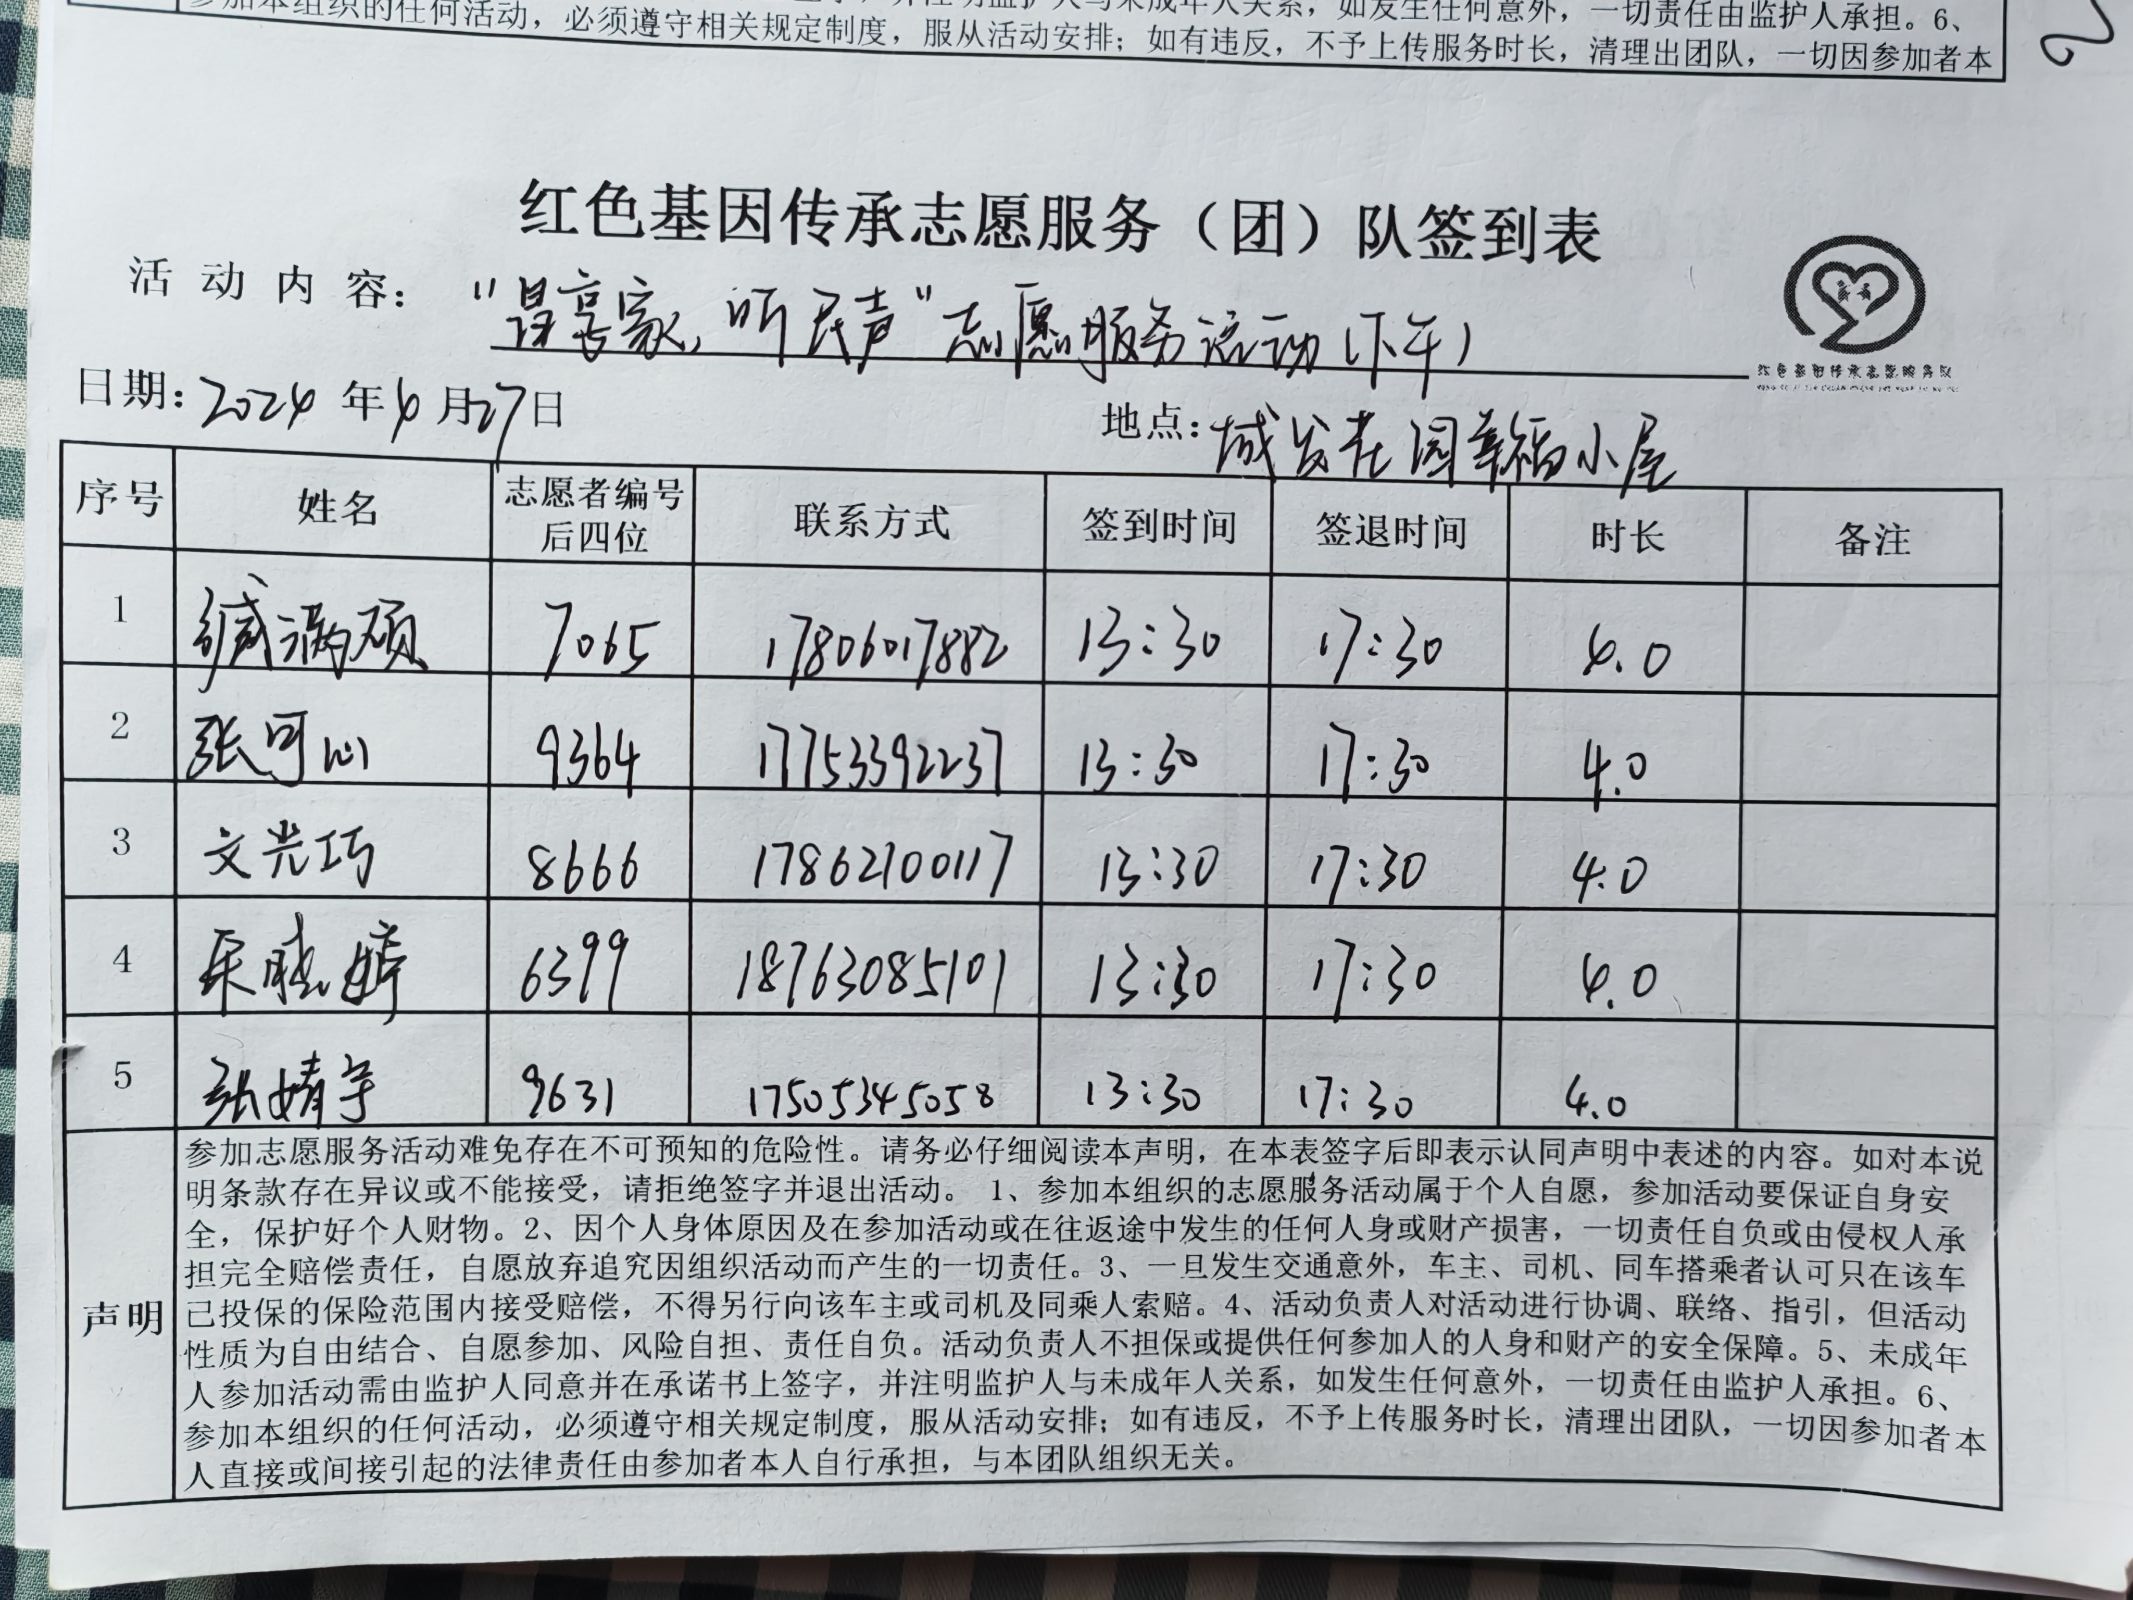 参加本组织的任何活动，必须遵守相关规定制度，服从活动安排；如有违反，不予上传服务时长，清理出团队，一切因参加者本
红色基因传承志愿服务（团）队签到表
活动内容：“ 家，听民声”志愿服务活动（下午）
日期：2024年4月27日 地点：城发花园幸福小屋
序号 姓名 志愿者编号后四位 联系方式 签到时间 签退时间 时长 备注
1 臧满硕 7065 17806017882 13:30 17:30 4.0
2 张可心 9364 17753392237 13:30 17:30 4.0
3 文光巧 8666 17862100117 13:30 17:30 4.0
4 晓婷 6399 18763085101 13:30 17:30 4.0
5 张婧宇 9631 17505345058 13:30 17:30 4.0
声明
参加志愿服务活动难免存在不可预知的危险性。请务必仔细阅读本声明，在本表签字后即表示认同声明中表述的内容。如对本说
明条款存在异议或不能接受，请拒绝签字并退出活动。 1、参加本组织的志愿服务活动属于个人自愿，参加活动要保证自身安
全，保护好个人财物。2、因个人身体原因及在参加活动或在往返途中发生的任何人身或财产损害，一切责任自负或由侵权人承
担完全赔偿责任，自愿放弃追究因组织活动而产生的一切责任。3、一旦发生交通意外，车主、司机、同车搭乘者认可只在该车
已投保的保险范围内接受赔偿，不得另行向该车主或司机及同乘人索赔。4、活动负责人对活动进行协调、联络、指引，但活动
性质为自由结合、自愿参加、风险自担、责任自负。活动负责人不担保或提供任何参加人的人身和财产的安全保障。5、未成年
人参加活动需由监护人同意并在承诺书上签字，并注明监护人与未成年人关系，如发生任何意外，一切责任由监护人承担。6、
参加本组织的任何活动，必须遵守相关规定制度，服从活动安排；如有违反，不予上传服务时长，清理出团队，一切因参加者本
人直接或间接引起的法律责任由参加者本人自行承担，与本团队组织无关。